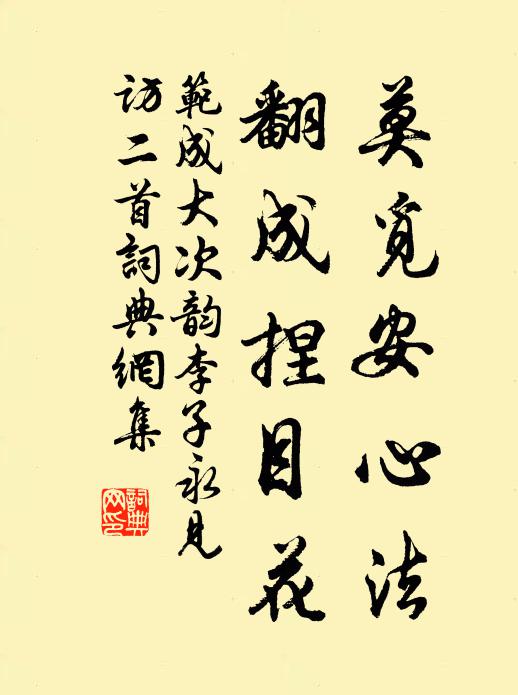 莫覓安心法
翻成捏目花
範成大次韵李子永見
訪二首詞典網集
詞典
网印